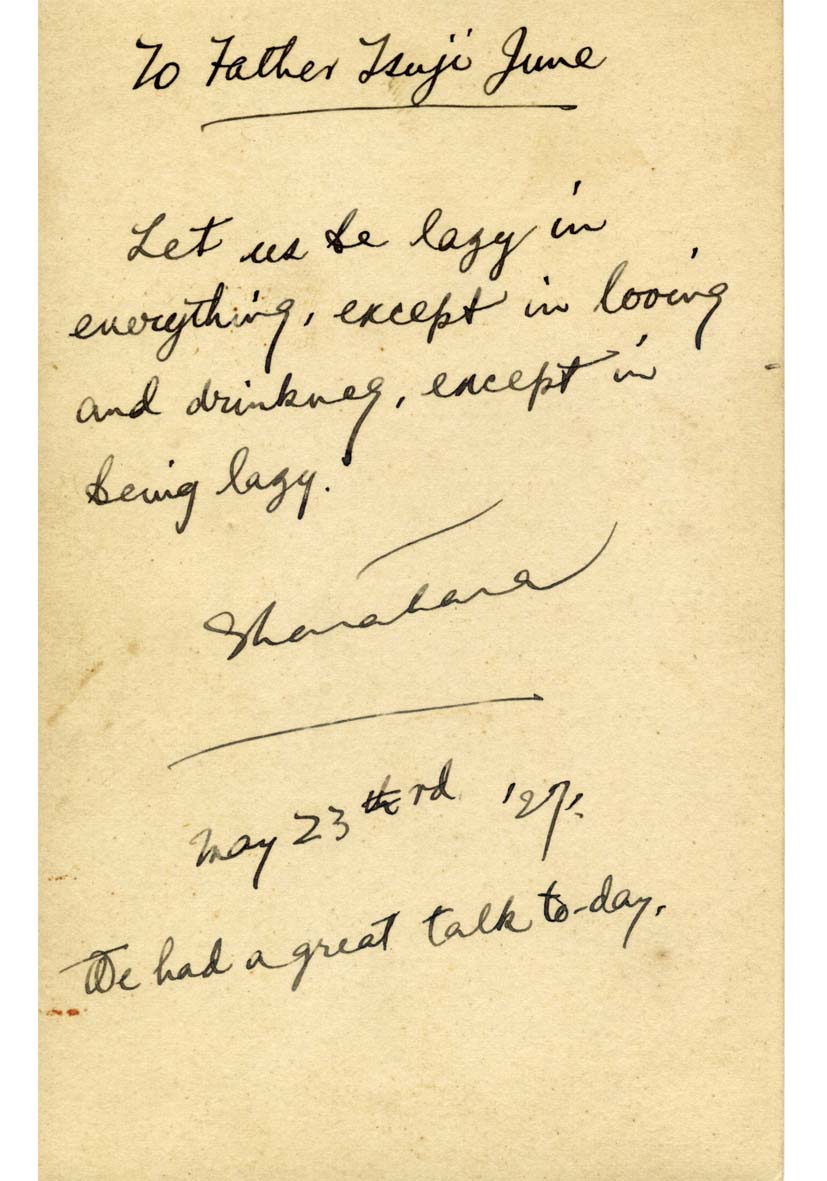 To Father Tsuji June
Let us be lazy in
everything, except in loving
and drinking, except in
being lazy.
May 23rd '27.
We had a great talk to-day.